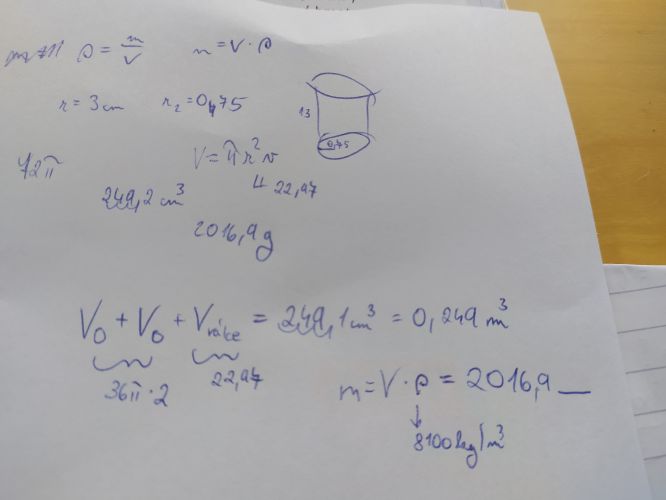 ρ = m/V    m = V · ρ
r = 3 cm    r₂ = 0,75
13
0,75
72π    V = πr²v
↳ 22,97
249,2 cm³
2016,9 g
V₀ + V₀ + Vráče = 249,1 cm³ = 0,249 m³
36π · 2    22,97
m = V · ρ = 2016,9 __
↓
8100 kg/m³